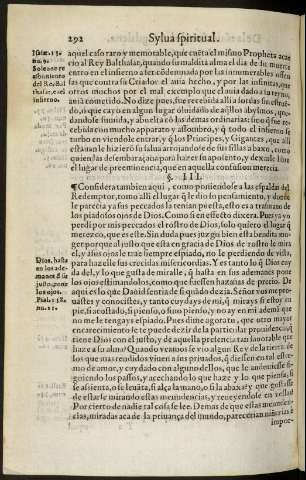 292 Sylua spiritual.
aquel caso raro y memorable, que cuēta el mismo Propheta acae
cio al Rey Balthasar, quando su maldita alma el dia de su muerte
entro en el infierno a ser cōdennada por las innumerables
sas que contra su Criador auia hecho, y por las infinitas
otros muchos por el mal exemplo que auia dado a la
auia cometido. No dize pues, fue recebida alli
do, ò que cayo en algun lugar oluidado de aq̃llos abysmos, que-
dandose sumida, y abuelta cō las demas ordinarias: sino q̃ fue re-
cebida con mucho apparato y assombro, y q̃ todo el infierno se
turbo en viendole entrar, y q̃ los Principes, y Gigantes, que alli
estauan le hizierō la salua arrojandose de sus sillas abaxo, como
quien las desembaraçaua para hazer su aposento, y dexarle libre
el lugar de preeminencia, que en aquella confusion merecia.
§. III.
¶ Considera tambien aqui, como poniendose a las espaldas del
Redemptor, tomo alli el lugar q̃ le dio su pensamiento, y donde
le parecia ya sus peccados la tenian puesta, esto era a trasmano de
los piadosos ojos de Dios. Como si en effecto dixera. Pues ya yo
perdi por mis peccados el rostro de Dios, solo quiero el lugar q̃
merezco, que es este. Sin duda pues juzga bien esta bendita mu-
ger porque al justo que esta en gracia de Dios de rostro le mira
el, y a los ojos le trae siempre espiado, no le perdiendo de vista,
para hazelle sus crecidas misericordias. Y es tanto lo q̃ Dios cuy
da del, y lo que gusta de miralle, q̃ hasta en sus ademanes pone
los ojos estimandolos, como que fuessen hazañas de precio. De
aqui es lo que Dauid sentia de si quādo dezia. Señor vos me pro-
uastes y conocistes, y tanto cuydays de mi, q̃ mirays si estoy en
pie, si acostado, si pienso, o si no pienso, y no ay en mi ademā que
no me le tengays espiado. Pues dime agora, que otro mayor
encarecimiento se te puede dezir de la particular prouidēcia q̃
tiene Dios con el justo, y de aquella presencia tan fauorable que
haze a su alma? Quando vemos se vio algun Rey de la tierra de
los que mas rendidos viuen a sus priuados, q̃ diessen en tal estre-
mo de amor, y cuydado con alguno dellos, que le anduuiesse si-
guiendo los passos, y acechando lo que haze y lo que piensa, si
se assienta, o se leuāta, si alça la mano, o si la abaxa? y que gustasse
de estarle mirando estas menudencias, y reueyendose en ellas?
Por cierto de nadie tal cosa se lee. Demas de que estas menuden-
cias, miradas aca de la priuança del mundo, parecerian niñerias è
impor-
Isaiæ. 14.
nu. 9.
Solenne re
cibimiento
del Rey Bal
thasar, en el
infierno.
Dios, hasta
en los ade-
manes d'l
justo, pone
los ojos.
Psal. 138.
nu. 11.